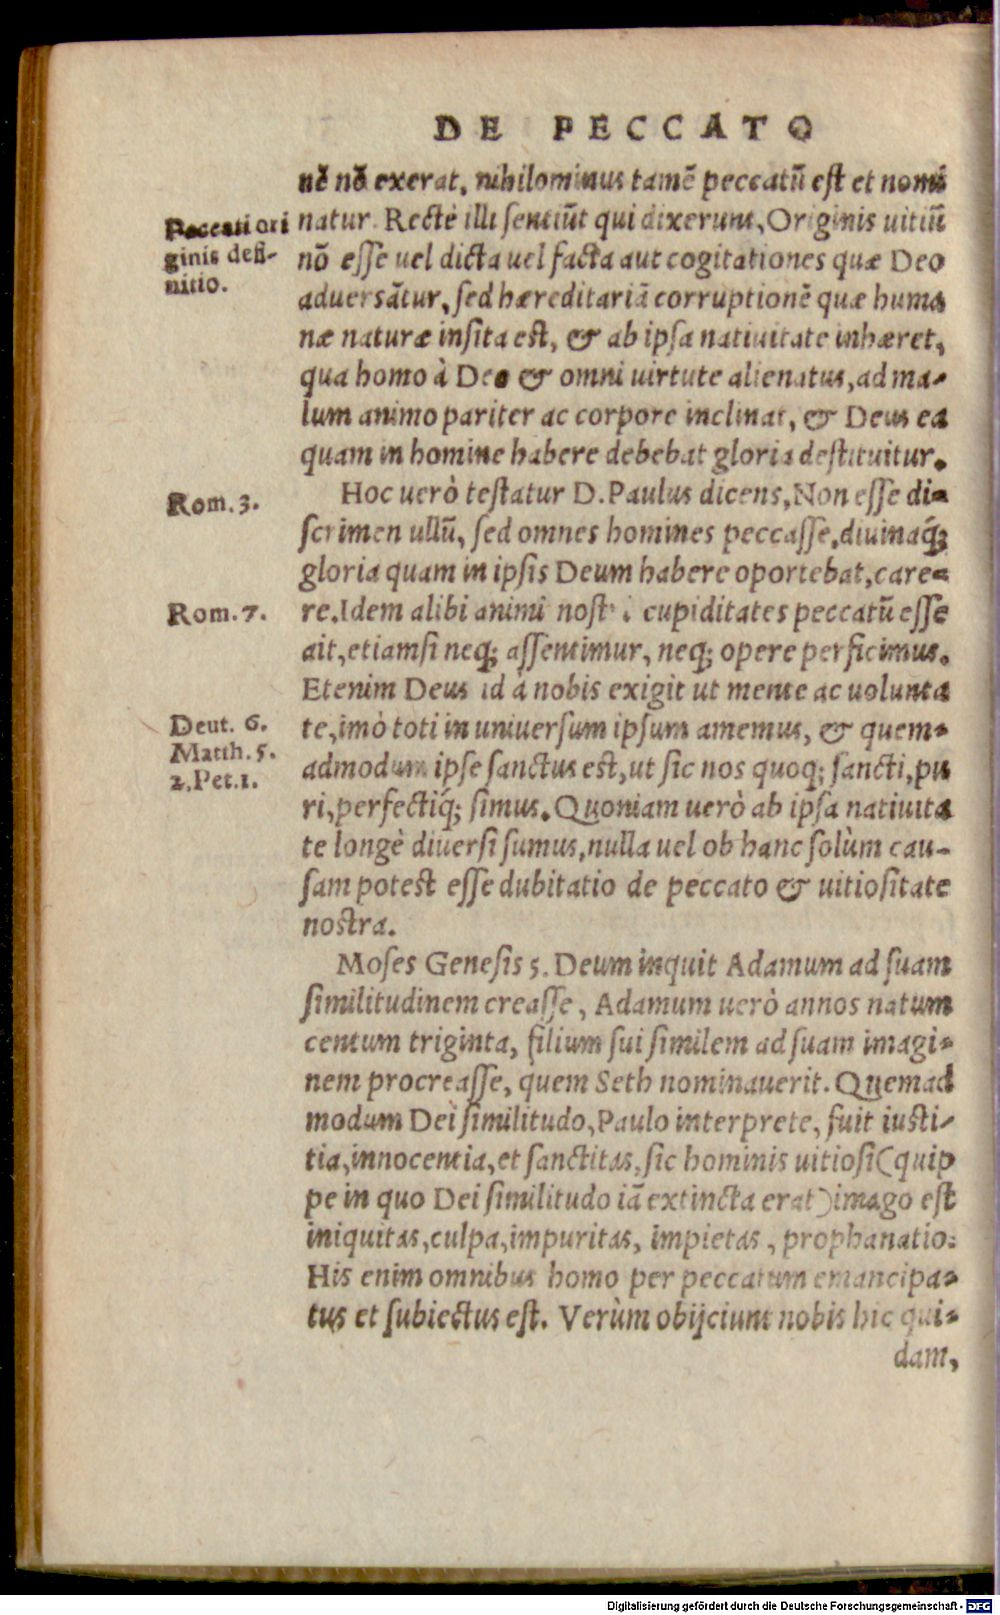 DE PECCATO
nẽ nõ exerat, nihilominus tamẽ peccatũ est et nomi
Peccati ori
ginis defi-
nitio.
natur. Rectè illi sentiũt qui dixerunt, Originis uitiũ
nõ esse uel dicta uel facta aut cogitationes quæ Deo
aduersãtur, sed hæreditariã corruptionẽ quæ huma
næ naturæ insita est, & ab ipsa natiuitate inhæret,
qua homo à Deo & omni uirtute alienatus, ad ma-
lum animo pariter ac corpore inclinat, & Deus ea
quam in homine habere debebat gloria destituitur.
Rom. 3.
Hoc uerò testatur D. Paulus dicens, Non esse di-
scrimen ullũ, sed omnes homines peccasse, diuinaq́;
gloria quam in ipsis Deum habere oportebat, care-
Rom. 7.
re. Idem alibi animi nostri cupiditates peccatũ esse
ait, etiamsi neq; assentimur, neq; opere perficimus.
Etenim Deus id à nobis exigit ut mente ac uolunta
Deut. 6.
Matth. 5.
2. Pet. 1.
te, imò toti in uniuersum ipsum amemus, & quem-
admodum ipse sanctus est, ut sic nos quoq; sancti, pu
ri, perfectiq́; simus. Quoniam uerò ab ipsa natiuita
te longè diuersi sumus, nulla uel ob hanc solùm cau-
sam potest esse dubitatio de peccato & uitiositate
nostra.
Moses Genesis 5. Deum inquit Adamum ad suam
similitudinem creasse, Adamum uerò annos natum
centum triginta, filium sui similem ad suam imagi-
nem procreasse, quem Seth nominauerit. Quemad
modum Dei similitudo, Paulo interprete, fuit iusti-
tia, innocentia, et sanctitas, sic hominis uitiosi (quip
pe in quo Dei similitudo iã extincta erat) imago est
iniquitas, culpa, impuritas, impietas, prophanatio:
His enim omnibus homo per peccatum emancipa-
tus et subiectus est. Verùm obijciunt nobis hic qui-
dam,
Digitalisierung gefördert durch die Deutsche Forschungsgemeinschaft - DFG